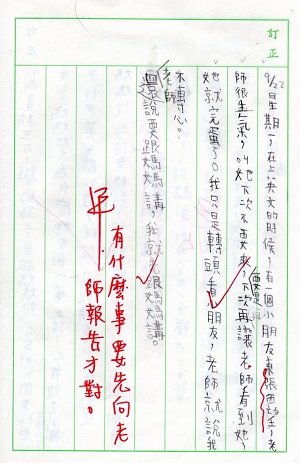 訂正
9/22星期一,在上英文的時候,有一個小朋友東張西望,老
師很生氣,叫她下次不要來,要是下次再讓老師看到她,
她就完蛋了。我只是轉頭看朋友,老師就說我
不專心。
老師還說要跟媽媽講,我就先跟媽媽講。
有什麼事要先向老
師報告才對。